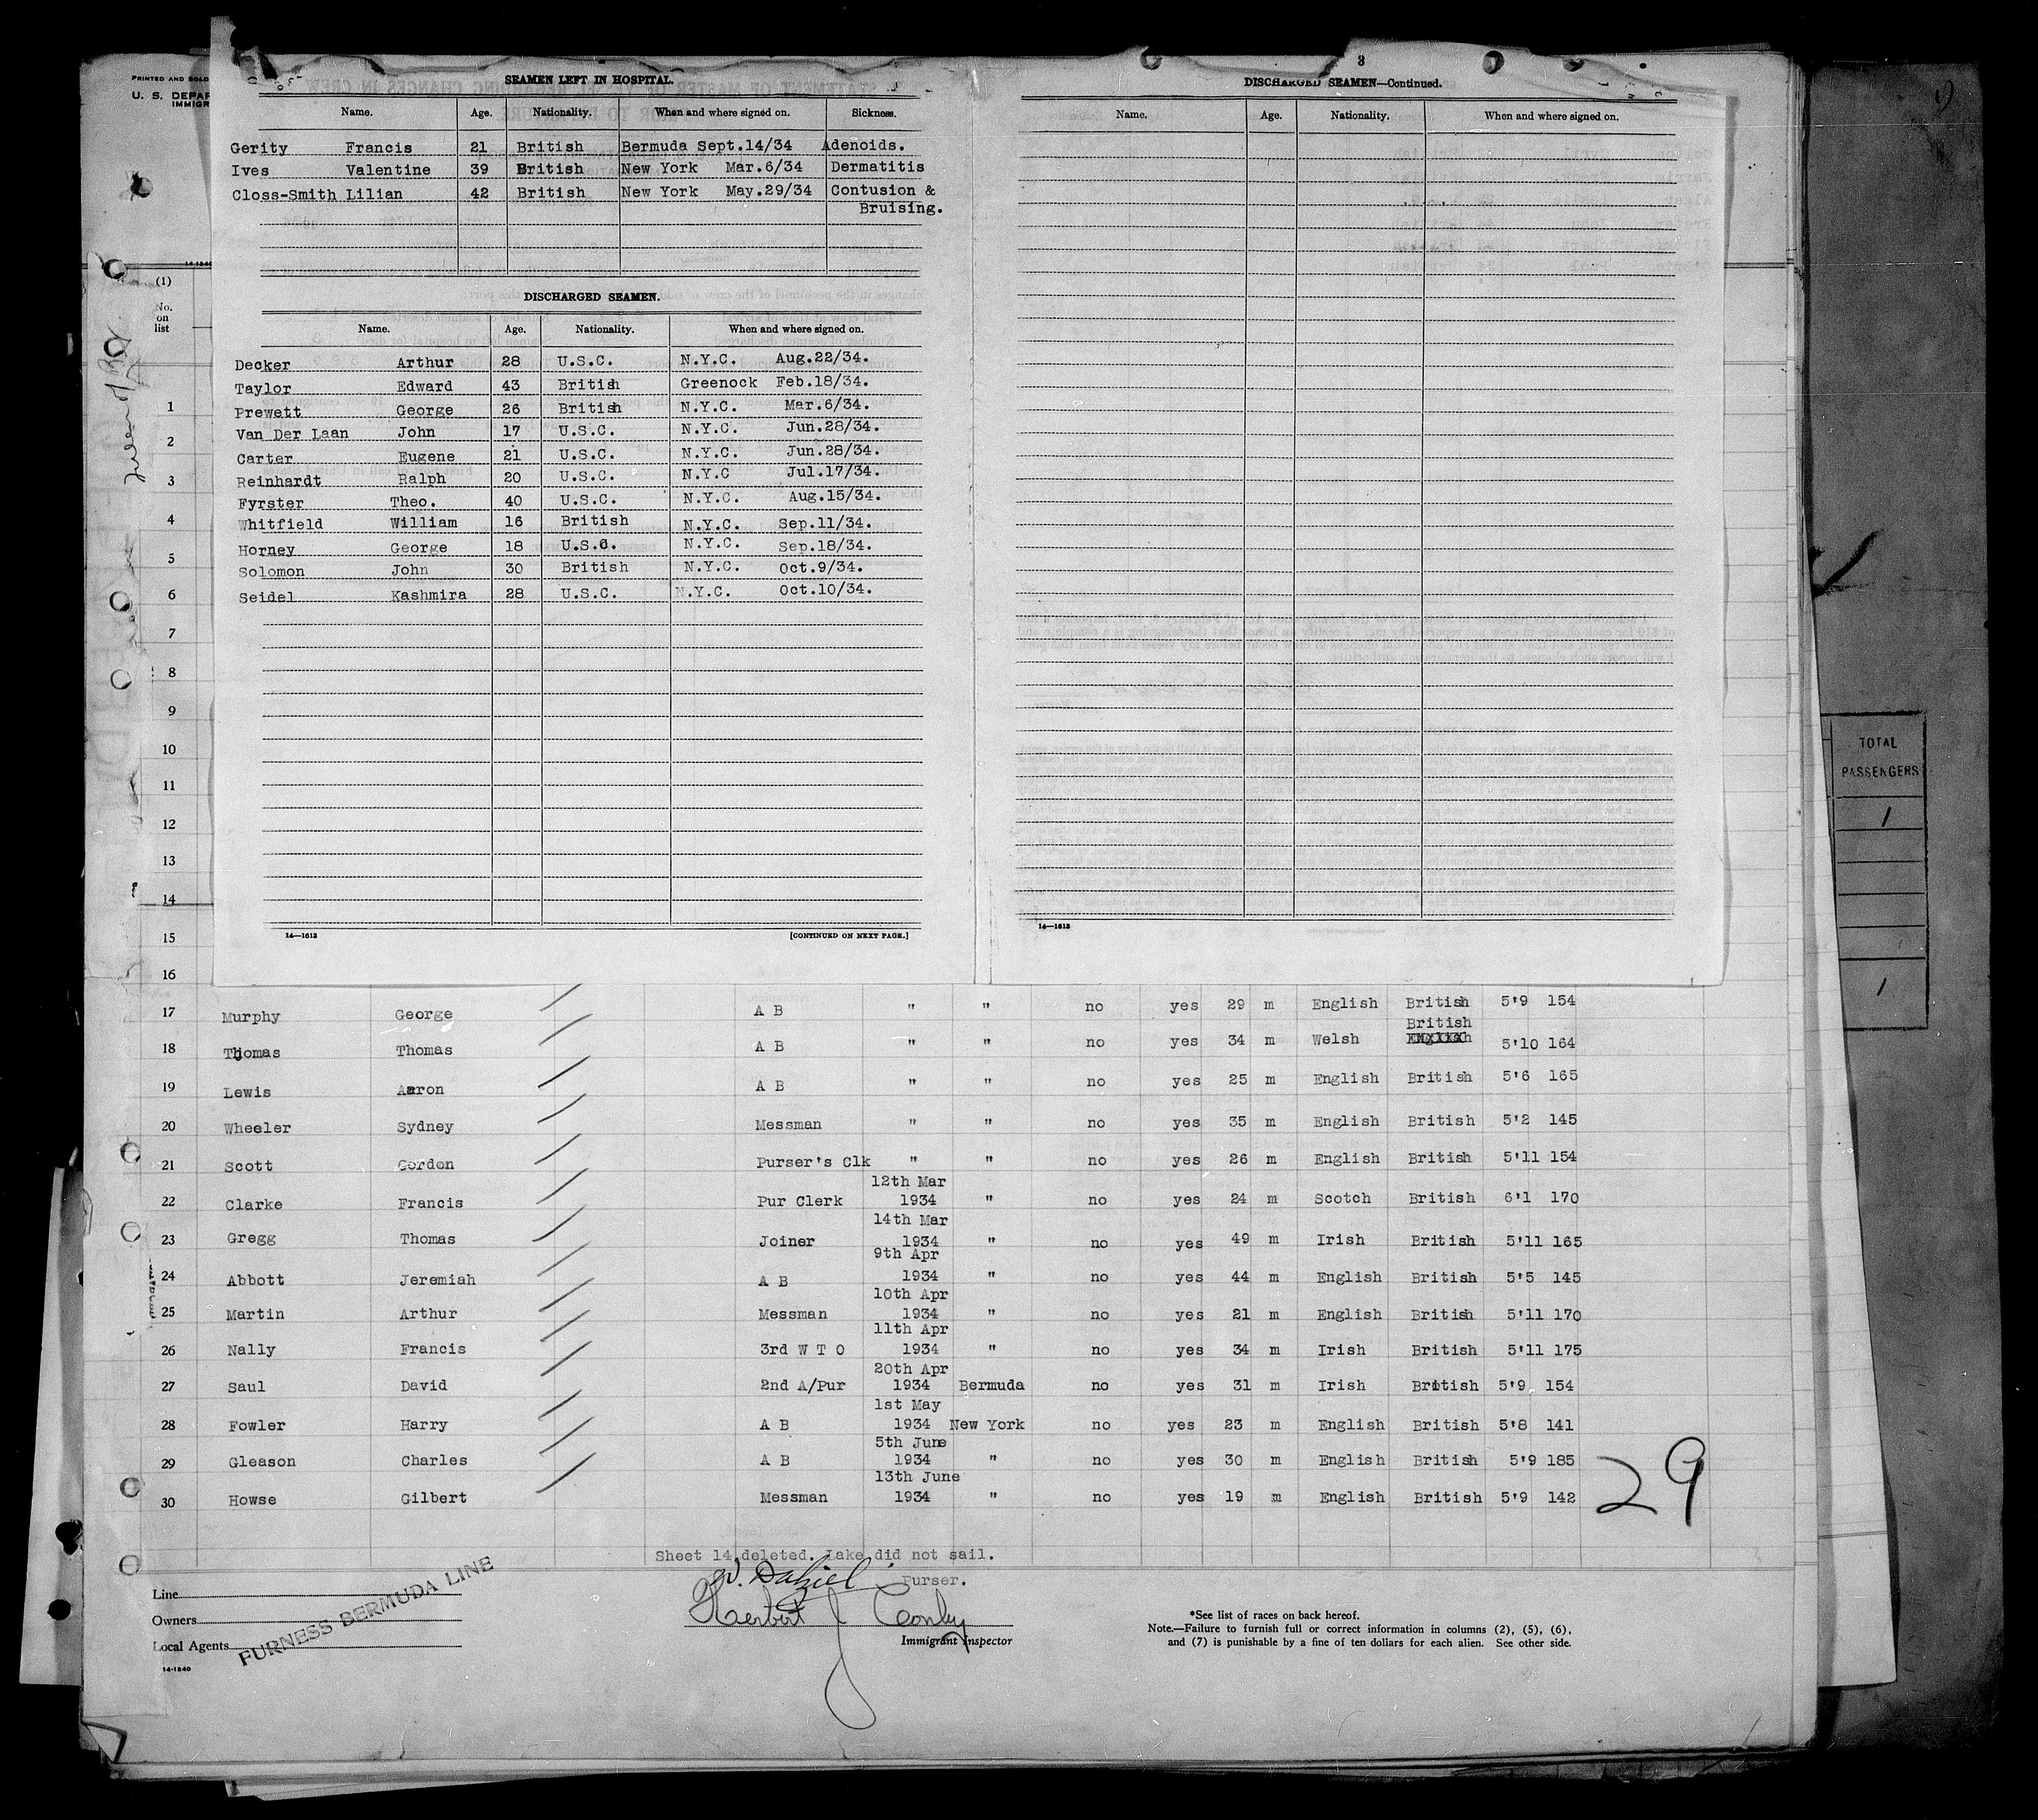 PRINTED AND SOLD
U. S. DEPAR
IMMIGR
14-1240
SEAMEN LEFT IN HOSPITAL.
Name. Age. Nationality. When and where signed on. Sickness.
Gerity Francis 21 British Bermuda Sept.14/34 Adenoids.
Ives Valentine 39 British New York Mar.6/34 Dermatitis
Closs-Smith Lilian 42 British New York May.29/34 Contusion &
Bruising.
DISCHARGED SEAMEN.
Name. Age. Nationality. When and where signed on.
Decker Arthur 28 U.S.C. N.Y.C. Aug.22/34.
Taylor Edward 43 British Greenock Feb.18/34.
Prewett George 26 British N.Y.C. Mar.6/34.
Van Der Laan John 17 U.S.C. N.Y.C. Jun.28/34.
Carter Eugene 21 U.S.C. N.Y.C. Jun.28/34.
Reinhardt Ralph 20 U.S.C. N.Y.C Jul.17/34.
Fyrster Theo. 40 U.S.C. N.Y.C. Aug.15/34.
Whitfield William 16 British N.Y.C. Sep.11/34.
Horney George 18 U.S.C. N.Y.C. Sep.18/34.
Solomon John 30 British N.Y.C. Oct.9/34.
Seidel Kashmira 28 U.S.C. N.Y.C. Oct.10/34.
14—1613 [CONTINUED ON NEXT PAGE.]
3
DISCHARGED SEAMEN—Continued.
Name. Age. Nationality. When and where signed on.
14—1613
TOTAL
PASSENGERS
1
1
(1)
No.
on
list
1
2
3
4
5
6
7
8
9
10
11
12
13
14
15
16
17 Murphy George A B " " no yes 29 m English British 5'9 154
British
18 Thomas Thomas A B " " no yes 34 m Welsh 5'10 164
19 Lewis Aaron A B " " no yes 25 m English British 5'6 165
20 Wheeler Sydney Messman " " no yes 35 m English British 5'2 145
21 Scott Gordon Purser's Clk " " no yes 26 m English British 5'11 154
12th Mar
22 Clarke Francis Pur Clerk 1934 " no yes 24 m Scotch British 6'1 170
14th Mar
23 Gregg Thomas Joiner 1934 " no yes 49 m Irish British 5'11 165
9th Apr
24 Abbott Jeremiah A B 1934 " no yes 44 m English British 5'5 145
10th Apr
25 Martin Arthur Messman 1934 " no yes 21 m English British 5'11 170
11th Apr
26 Nally Francis 3rd W T O 1934 " no yes 34 m Irish British 5'11 175
20th Apr
27 Saul David 2nd A/Pur 1934 Bermuda no yes 31 m Irish British 5'9 154
1st May
28 Fowler Harry A B 1934 New York no yes 23 m English British 5'8 141
5th June
29 Gleason Charles A B 1934 " no yes 30 m English British 5'9 185
13th June
30 Howse Gilbert Messman 1934 " no yes 19 m English British 5'9 142
29
Sheet 14 deleted. Lake did not sail.
Purser.
Herbert J
Immigrant Inspector
Line
Owners
Local Agents
FURNESS BERMUDA LINE
14-1240
*See list of races on back hereof.
Note.—Failure to furnish full or correct information in columns (2), (5), (6),
and (7) is punishable by a fine of ten dollars for each alien. See other side.